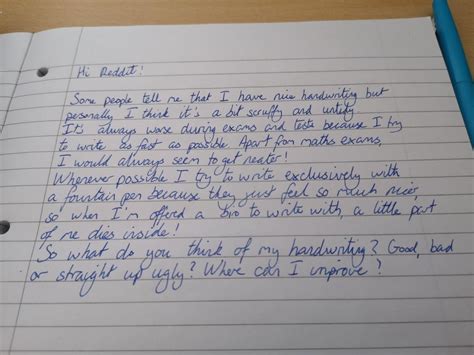 Hi Reddit!
Some people tell me that I have nice handwriting but
personally I think it's a bit scruffy and untidy
It's always worse during exams and tests because I try
to write as fast as possible. Apart from maths exams,
I would always seem to get neater!
Whenever possible I try to write exclusively with
a fountain pen because they just feel so much nicer,
so when I'm offered a biro to write with, a little part
of me dies inside!
So what do you think of my handwriting? Good, bad
or straight up ugly? Where can I improve?